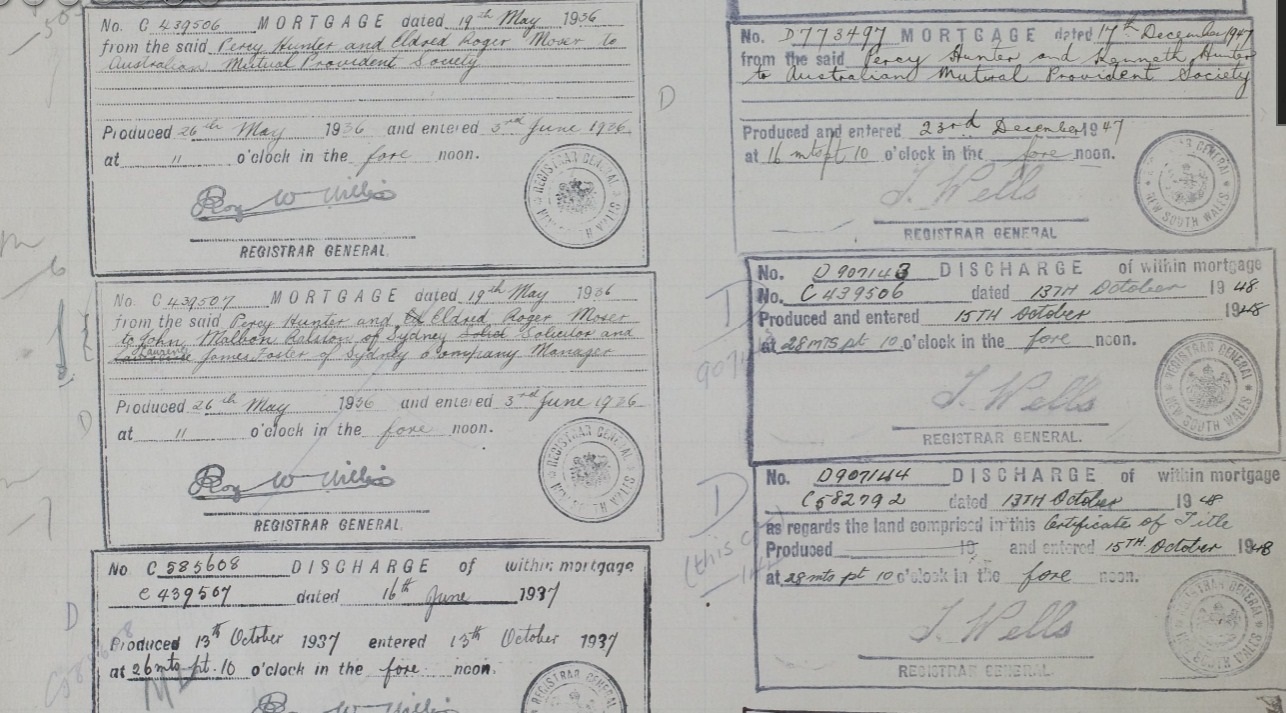 No. C 439506 MORTGAGE dated 19th May 1936
from the said Percy Hunter and Eldred Roger Moser to
Australian Mutual Provident Society
Produced 26th May 1936 and entered 3rd June 1936
at 11 o'clock in the fore noon.
Roy W Willis
REGISTRAR GENERAL
REGISTRAR GENERAL
REGISTRAR GENERAL.
No. C 439507 MORTGAGE dated 19th May 1936
from the said Percy Hunter and Eldred Roger Moser
to John Malbon Ralston of Sydney Solicitor and
James Foster of Sydney Company Manager
Produced 26th May 1936 and entered 3rd June 1936
at 11 o'clock in the fore noon.
Roy W Willis
REGISTRAR GENERAL
REGISTRAR GENERAL.
No C 585608 DISCHARGE of within mortgage
C 439507 dated 16th June 1937
Produced 13th October 1937 entered 13th October 1937
at 26 mts pt. 10 o'clock in the fore noon.
Roy W Willis
REGISTRAR GENERAL
D
D
D
No. D773497 MORTGAGE dated 17th December 1947
from the said Percy Hunter and Kenneth Hunter
to Australian Mutual Provident Society
Produced and entered 23rd December 1947
at 16 mts pt 10 o'clock in the fore noon.
J. Wells
REGISTRAR GENERAL
REGISTRAR GENERAL NEW SOUTH WALES
No. D907143 DISCHARGE of within mortgage
No. C 439506 dated 13TH October 1948
Produced and entered 15TH October 1948
at 28 mts pt 10 o'clock in the fore noon.
J. Wells
REGISTRAR GENERAL.
REGISTRAR GENERAL NEW SOUTH WALES
D
No. D907144 DISCHARGE of within mortgage
C582792 dated 13TH October 1948
as regards the land comprised in this Certificate of Title
Produced 19 and entered 15TH October 1948
at 28 mts pt 10 o'clock in the fore noon.
J. Wells
REGISTRAR GENERAL.
REGISTRAR GENERAL NEW SOUTH WALES
D